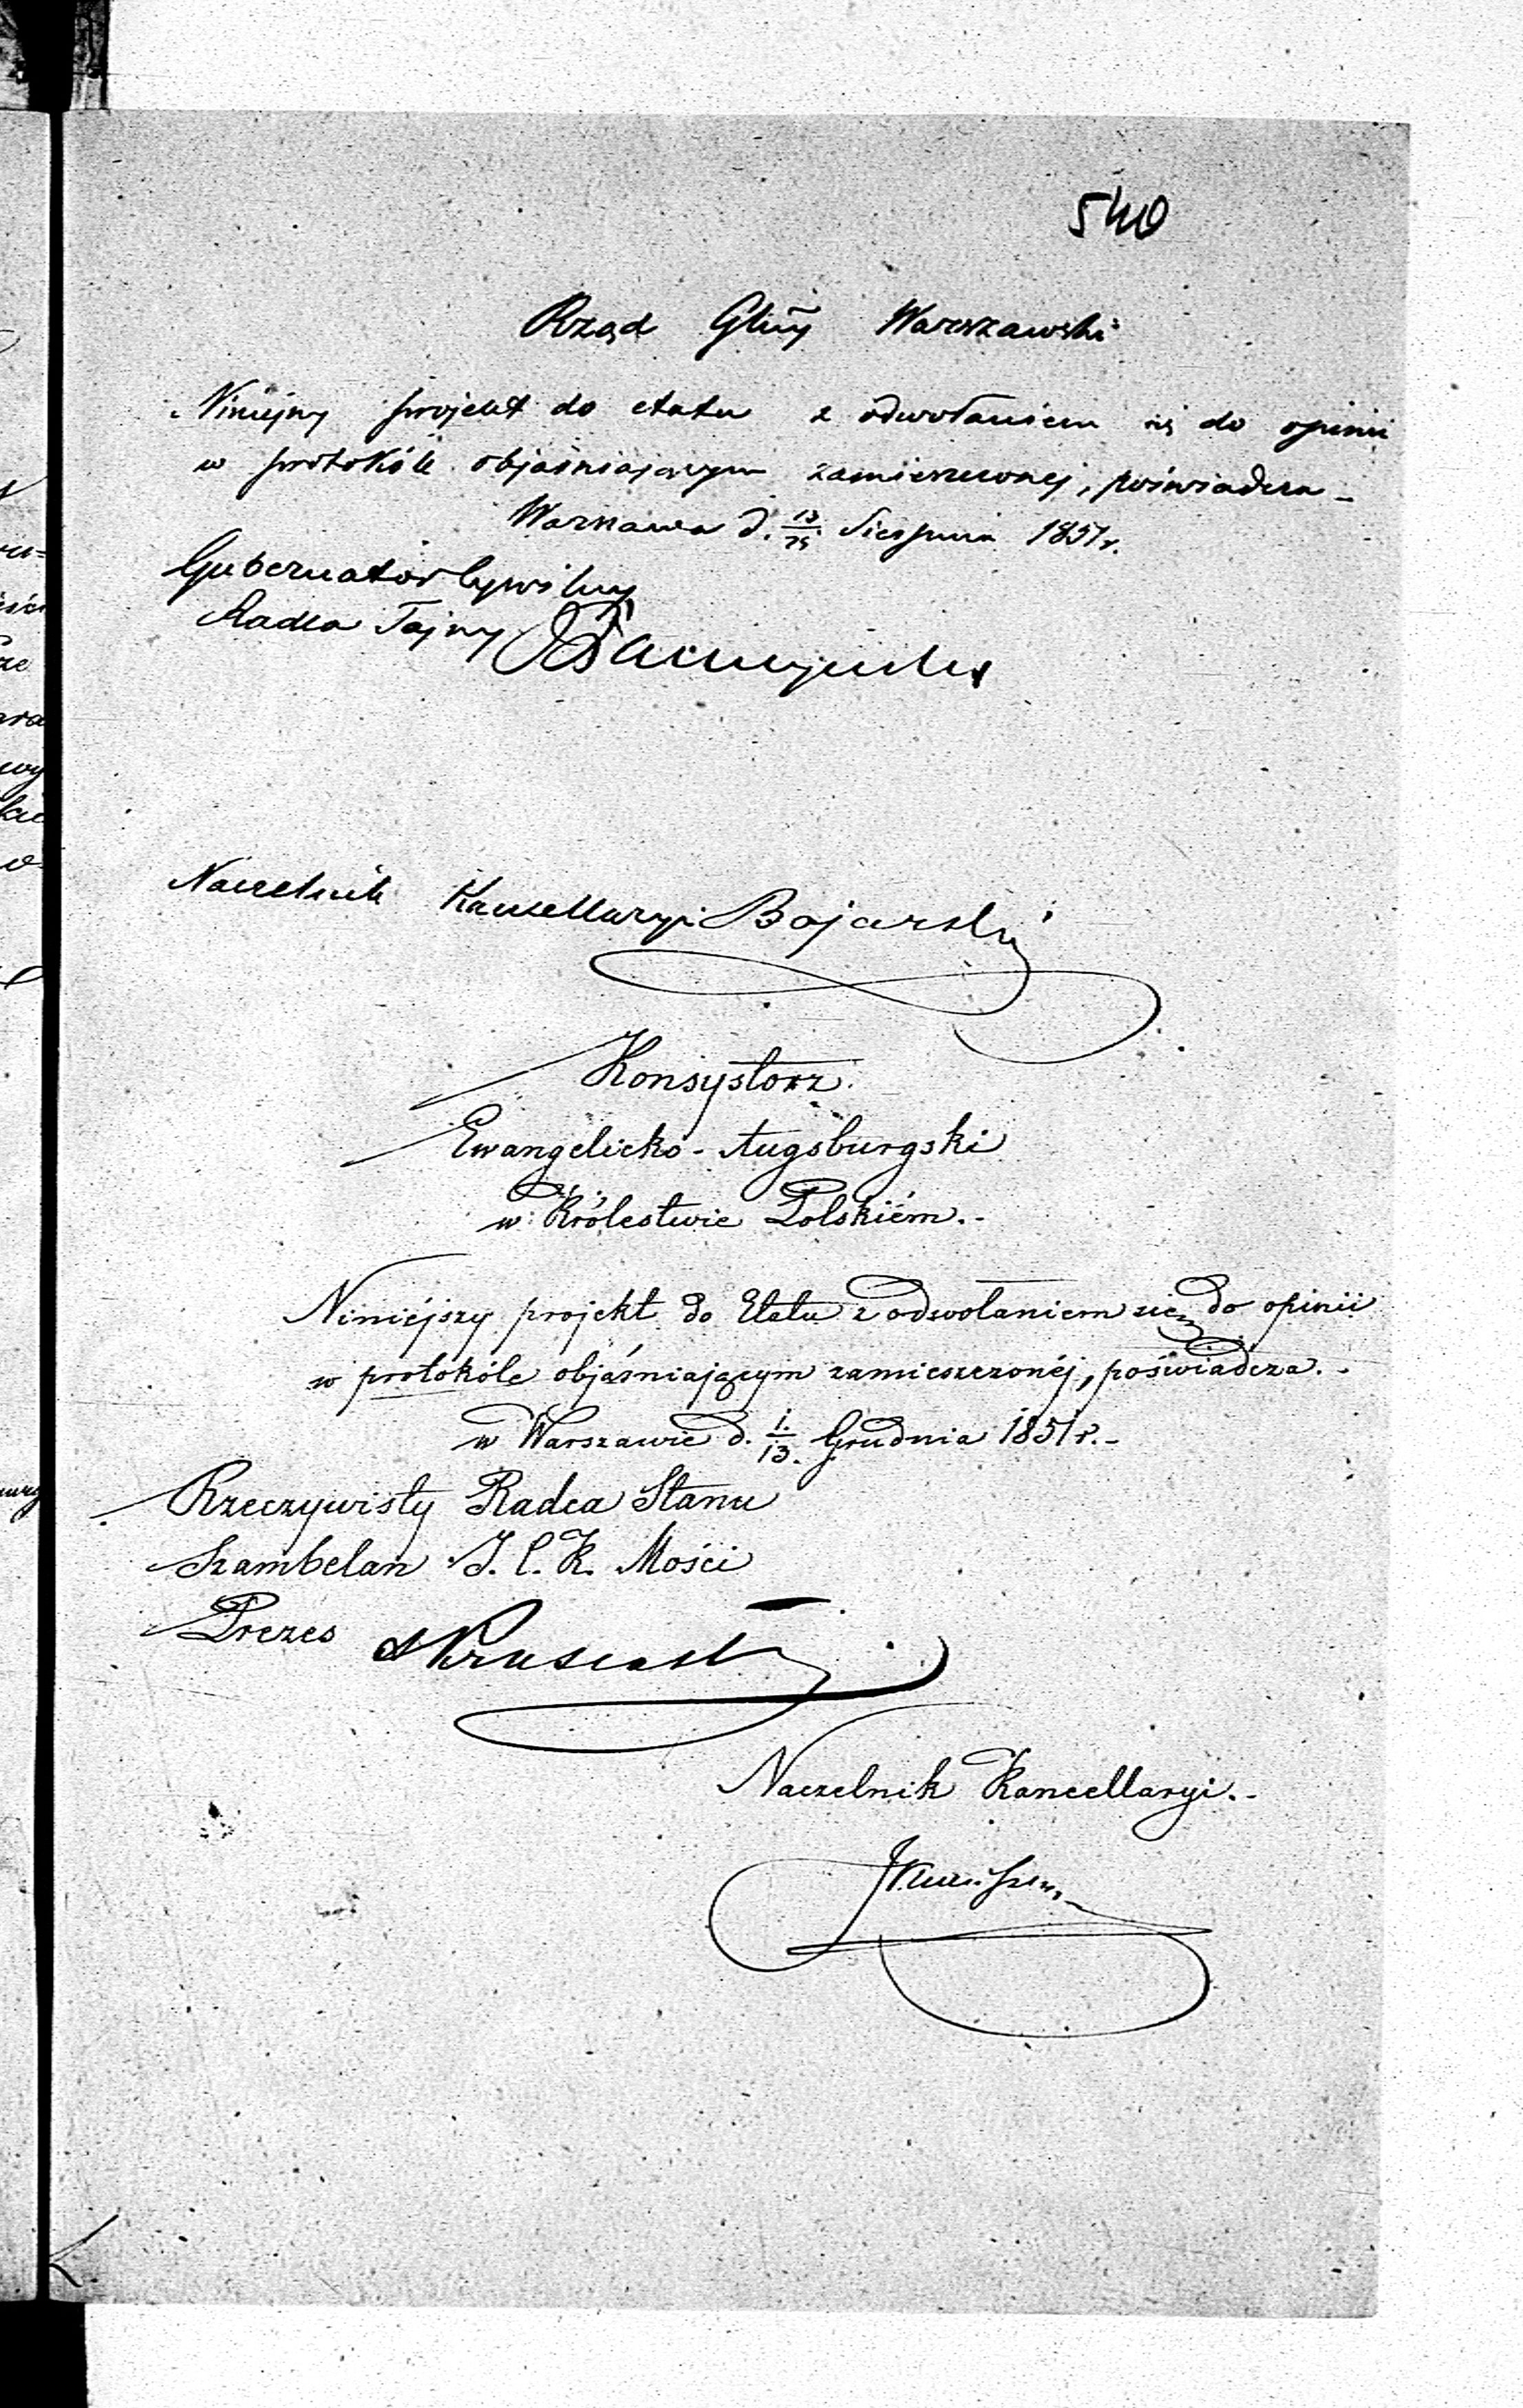 540
Rząd Gbny Warszawski
Niniejszy projekt do etatu z odwołaniem się do opinii
w protokóle objaśniającym zamieszczonej, poświadcza -
Warszawa d. 13/25 Sierpnia 1851 r.
Gubernator Cywilny
Radca Tajny
Naczelnik Kancellaryi Bojarski
Konsystorz
Ewangelicko-Augsburgski
w Królestwie Polskiém.-
Niniéjszy projekt do Etatu z odwołaniem się do opinii
w protokóle objaśniającym zamieszczonéj, poświadcza.-
w Warszawie d. 1/13. Grudnia 1851 r.-
Rzeczywisty Radca Stanu
Szambelan J. C. K. Mości
Prezes
Naczelnik Kancellaryi.-